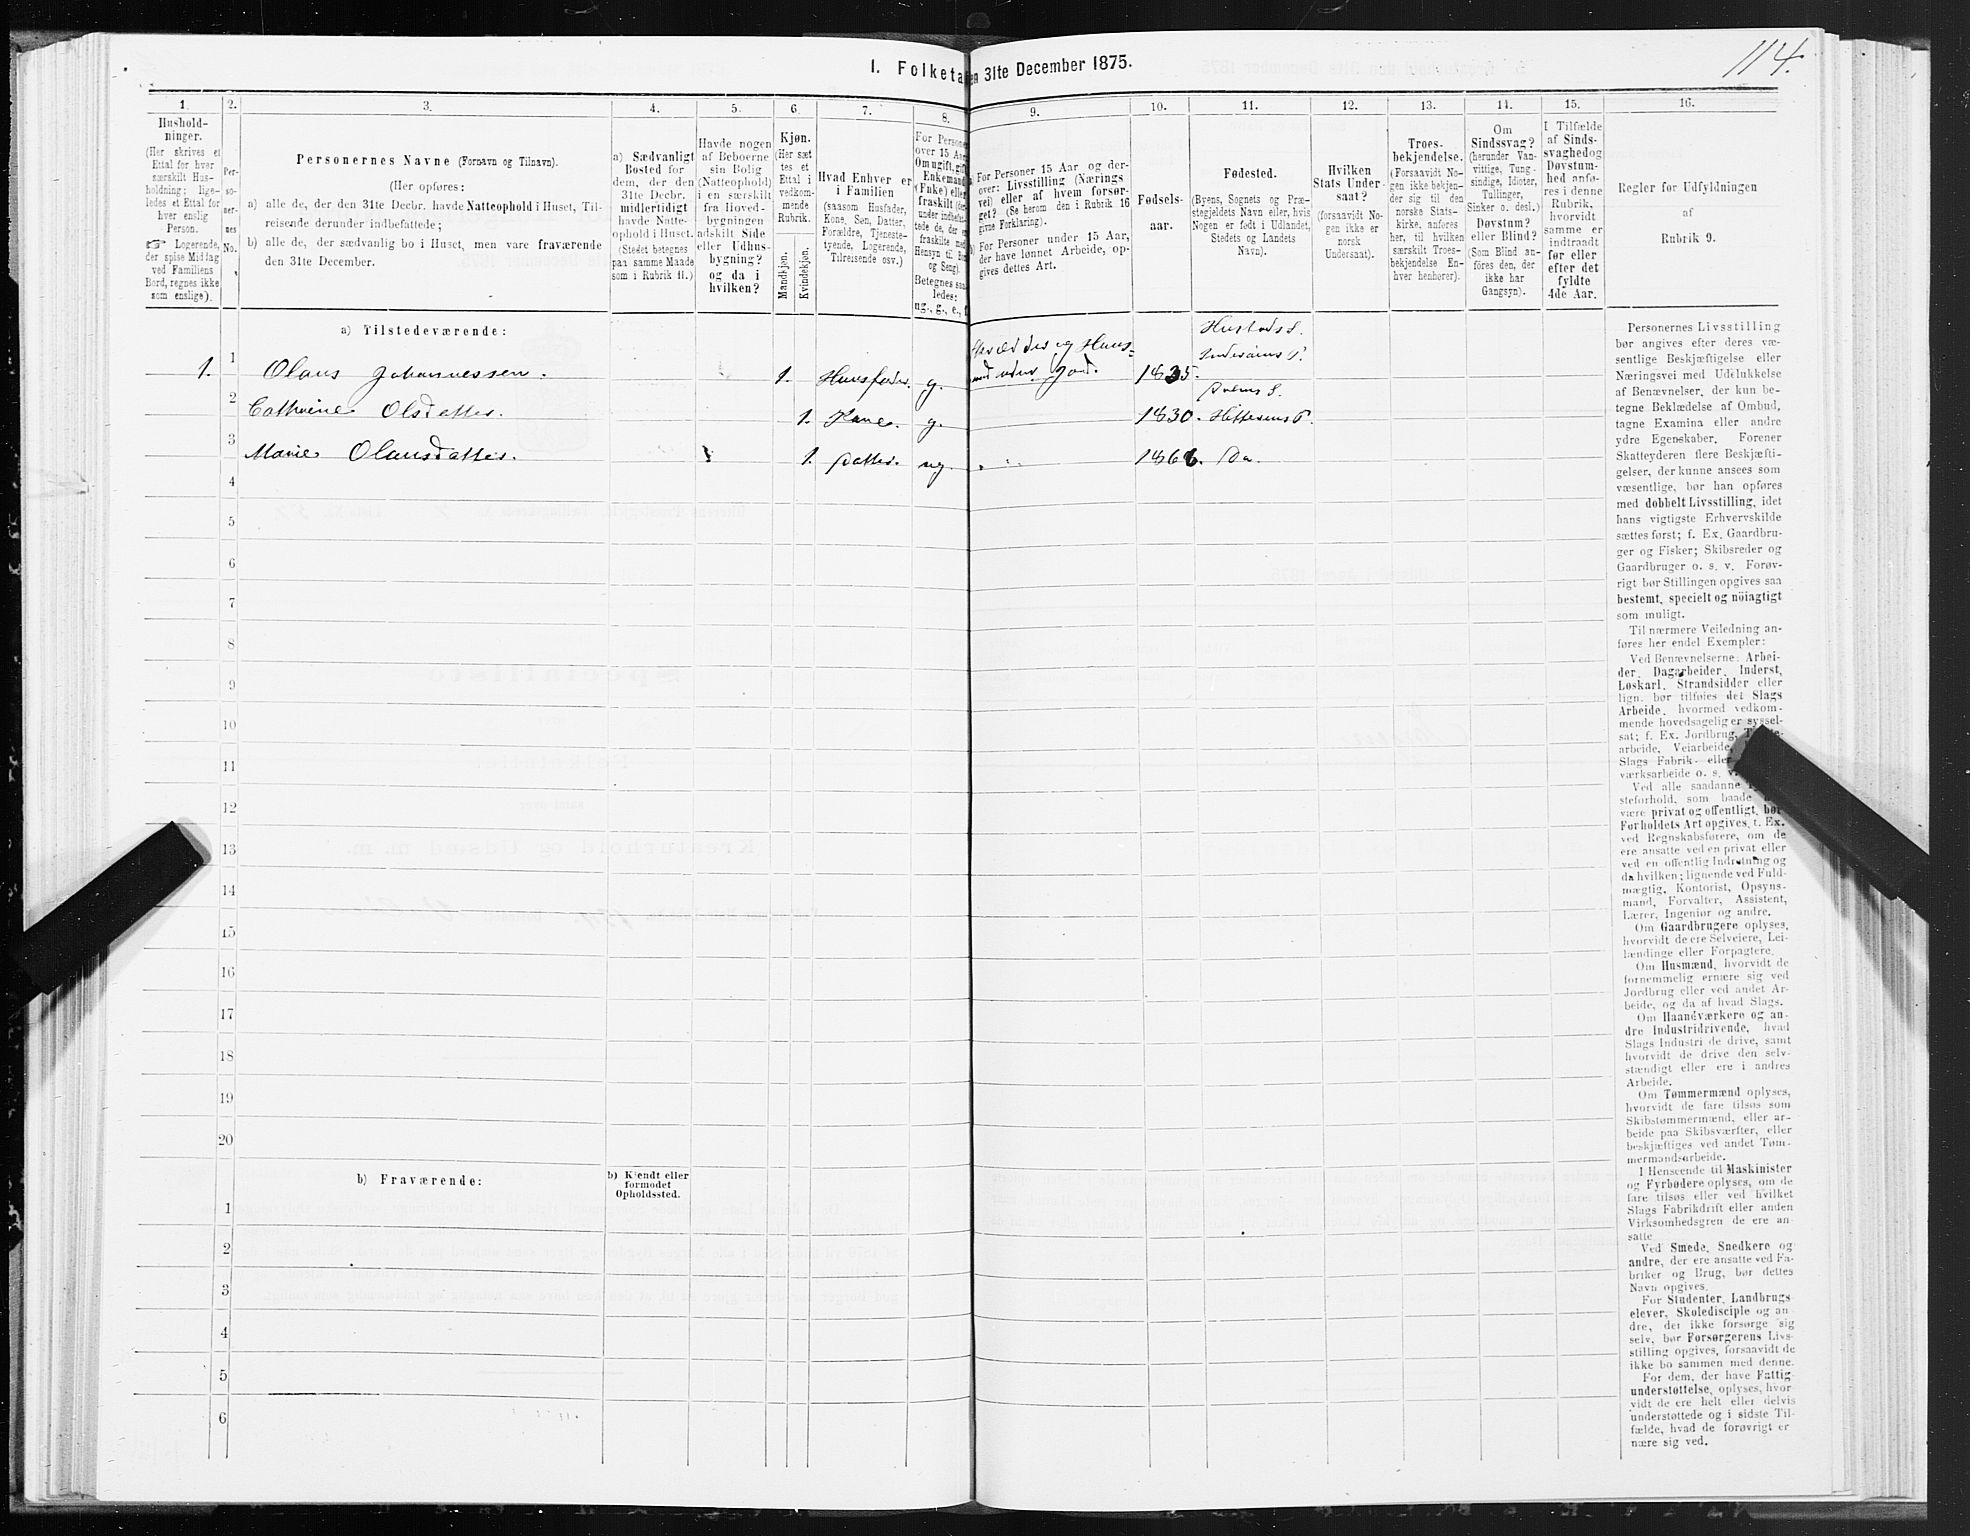 114.
I. Folketa en 31te December 1875.
1. 2. 3. 4. 5. 6. 7. 8. 9. 10. 11. 12. 13. 14. 15. 16.
Hushold-
ninger.
(Her skrives et
Ettal for hver
særskilt Hus-
holdning; lige-
ledes et Ettal for
hver enslig
Person.
☞ Logerende,
der spise Middag
ved Familiens
Bord, regnes ikke
som enslige).
Per-
so-
ner-
nes
No.
Personernes Navne (Fornavn og Tilnavn).
(Her opføres:
a) alle de, der den 31te Decbr. havde Natteophold i Huset, Til-
reisende derunder indbefattede;
b) alle de, der sædvanlig bo i Huset, men vare fraværende
den 31te December.
a) Sædvanligt
Bosted for
dem, der den
31te Decbr.
midlertidigt
havde Natte-
ophold i Huset.
(Stedet betegnes
paa samme Maade
som i Rubrik 11.)
Havde nogen
af Beboerne
sin Bolig
(Natteophold)
i en særskilt
fra Hoved-
bygningen
adskilt Side
eller Udhus-
bygning?
og da i
hvilken?
Kjøn.
(Her sæt
tes et
Ettal i
vedkom-
mende
Rubrik.
Mandkjøn.
Kvindekjøn.
Hvad Enhver er
i Familien
(saasom Husfader,
Kone, Søn, Datter,
Forældre, Tjeneste-
tyende, Logerende,
Tilreisende osv.)
For Persone
over 15 Aar
Om ugift, gift
Enkemand
(Enke) eller
fraskilt (der
under indbefat-
tede de, der er
fraskilte med
Hensyn til Bo
og Seng).
Betegnes saa
ledes:
ug., g., e., f
For Personer 15 Aar og der-
over: Livsstilling (Nærings
vei) eller af hvem forsør-
get? (Se herom den i Rubrik 16
givne Forklaring).
For Personer under 15 Aar,
der have lønnet Arbeide, op-
gives dettes Art.
Fødsels-
aar.
Fødested.
(Byens, Sognets og Præ-
stegjeldets Navn eller, hvis
Nogen er født i Udlandet,
Stedets og Landets
Navn).
Hvilken
Stats Under-
saat?
(forsaavidt No-
gen ikke er
norsk
Undersaat).
Troes-
bekjendelse.
(Forsaavidt No-
gen ikke bekjen-
der sig til den
norske Stats-
kirke, anføres
her, til hvilken
særskilt Troes-
bekjendelse En-
hver henhører).
Om
Sindssvag?
(herunder Van-
vittige, Tung-
sindige, Idioter,
Tullinger,
Sinker o. desl.)
Døvstum?
eller Blind?
(Som Blind an-
føres den, der
ikke har
Gangsyn).
I Tilfælde
af Sinds-
svaghed og
Døvstum-
hed anfø-
res i denne
Rubrik,
hvorvidt
samme er
indtraadt
før eller
efter det
fyldte
4de Aar.
Regler for Udfyldningen
af
Rubrik 9.
a) Tilstedeværende:
1 1. Olaus Johannessen. 1. Huusfader. g. uden Jord. 1835.
2 Cathrine Olsdatter. 1. Kone. g. 1830. Hitterens P.
3 Marie Olausdatter. 1. Datter. ug. 1866. Do.
4
5
6
7
8
9
10
11
12
13
14
15
16
17
18
19
20
b) Fraværende:
b) Kjendt eller
formodet
Opholdssted.
1
2
3
4
5
6
Personernes Livsstilling
bør angives efter deres væ-
sentlige Beskjæftigelse eller
Næringsvei med Udelukkelse
af Benævnelser, der kun be-
tegne Beklædelse af Ombud,
tagne Examina eller andre
ydre Egenskaber. Forener
Skatteyderen flere Beskjæfti-
gelser, der kunne ansees som
væsentlige, bør han opføres
med dobbelt Livsstilling, idet
hans vigtigste Erhvervskilde
sættes først; f. Ex. Gaardbru-
ger og Fisker; Skibsreder og
Gaardbruger o. s. v. Forøv-
rigt bør Stillingen opgives saa
bestemt, specielt og nöiagtigt
som muligt.
Til nærmere Veiledning an-
føres her endel Exempler:
Ved Benævnelserne: Arbei-
der, Dagarbeider, Inderst,
Løskarl, Strandsidder eller
lign. bør tilføies det Slags
Arbeide, hvormed vedkom-
mende hovedsagelig er syssel-
sat; f. Ex. Jordbrug,
arbeide, Veiarbeide,
Slags Fabrik- eller
værksarbeide o. s. v.
Ved alle saadanne
steforhold, som baade
være privat og offentligt, bør
Forholdets Art opgives, t. Ex.
ved Regnskabsførere, om de
ere ansatte ved en privat eller
ved en offentlig Indretning og
da hvilken; lignende ved Fuld-
mægtig, Kontorist, Opsyns-
mand, Forvalter, Assistent,
Lærer, Ingeniør og andre.
Om Gaardbrugere oplyses,
hvorvidt de ere Selveiere, Lei-
lændinge eller Forpagtere.
Om Husmænd, hvorvidt de
fornemmelig ernære sig ved
Jordbrug eller ved andet Ar-
beide, og da af hvad Slags.
Om Haandværkere og an-
dre Industridrivende, hvad
Slags Industri de drive, samt
hvorvidt de drive den selv-
stændigt eller ere i andres
Arbeide.
Om Tømmermænd oplyses,
hvorvidt de fare tilsøs som
Skibstømmermænd, eller ar-
beide paa Skibsværfter, eller
beskjæftiges ved andet Tøm-
mermandsarbeide.
I Henseende til Maskinister
og Fyrbødere oplyses, om de
fare tilsøs eller ved hvilket
Slags Fabrikdrift eller anden
Virksomhedsgren de ere an-
satte.
Ved Smede, Snedkere og
andre, der ere ansatte ved Fa-
briker og Brug, bør dettes
Navn opgives.
For Studenter, Landbrugs-
elever, Skoledisciple og an-
dre, der ikke forsørge sig
selv, bør Forsørgerens Livs-
stilling opgives, forsaavidt de
ikke bo sammen med denne.
For dem, der have Fattig-
understøttelse, oplyses, hvor-
vidt de ere helt eller delvis
understøttede og i sidste Til-
fælde, hvad de forøvrigt er-
nære sig ved.